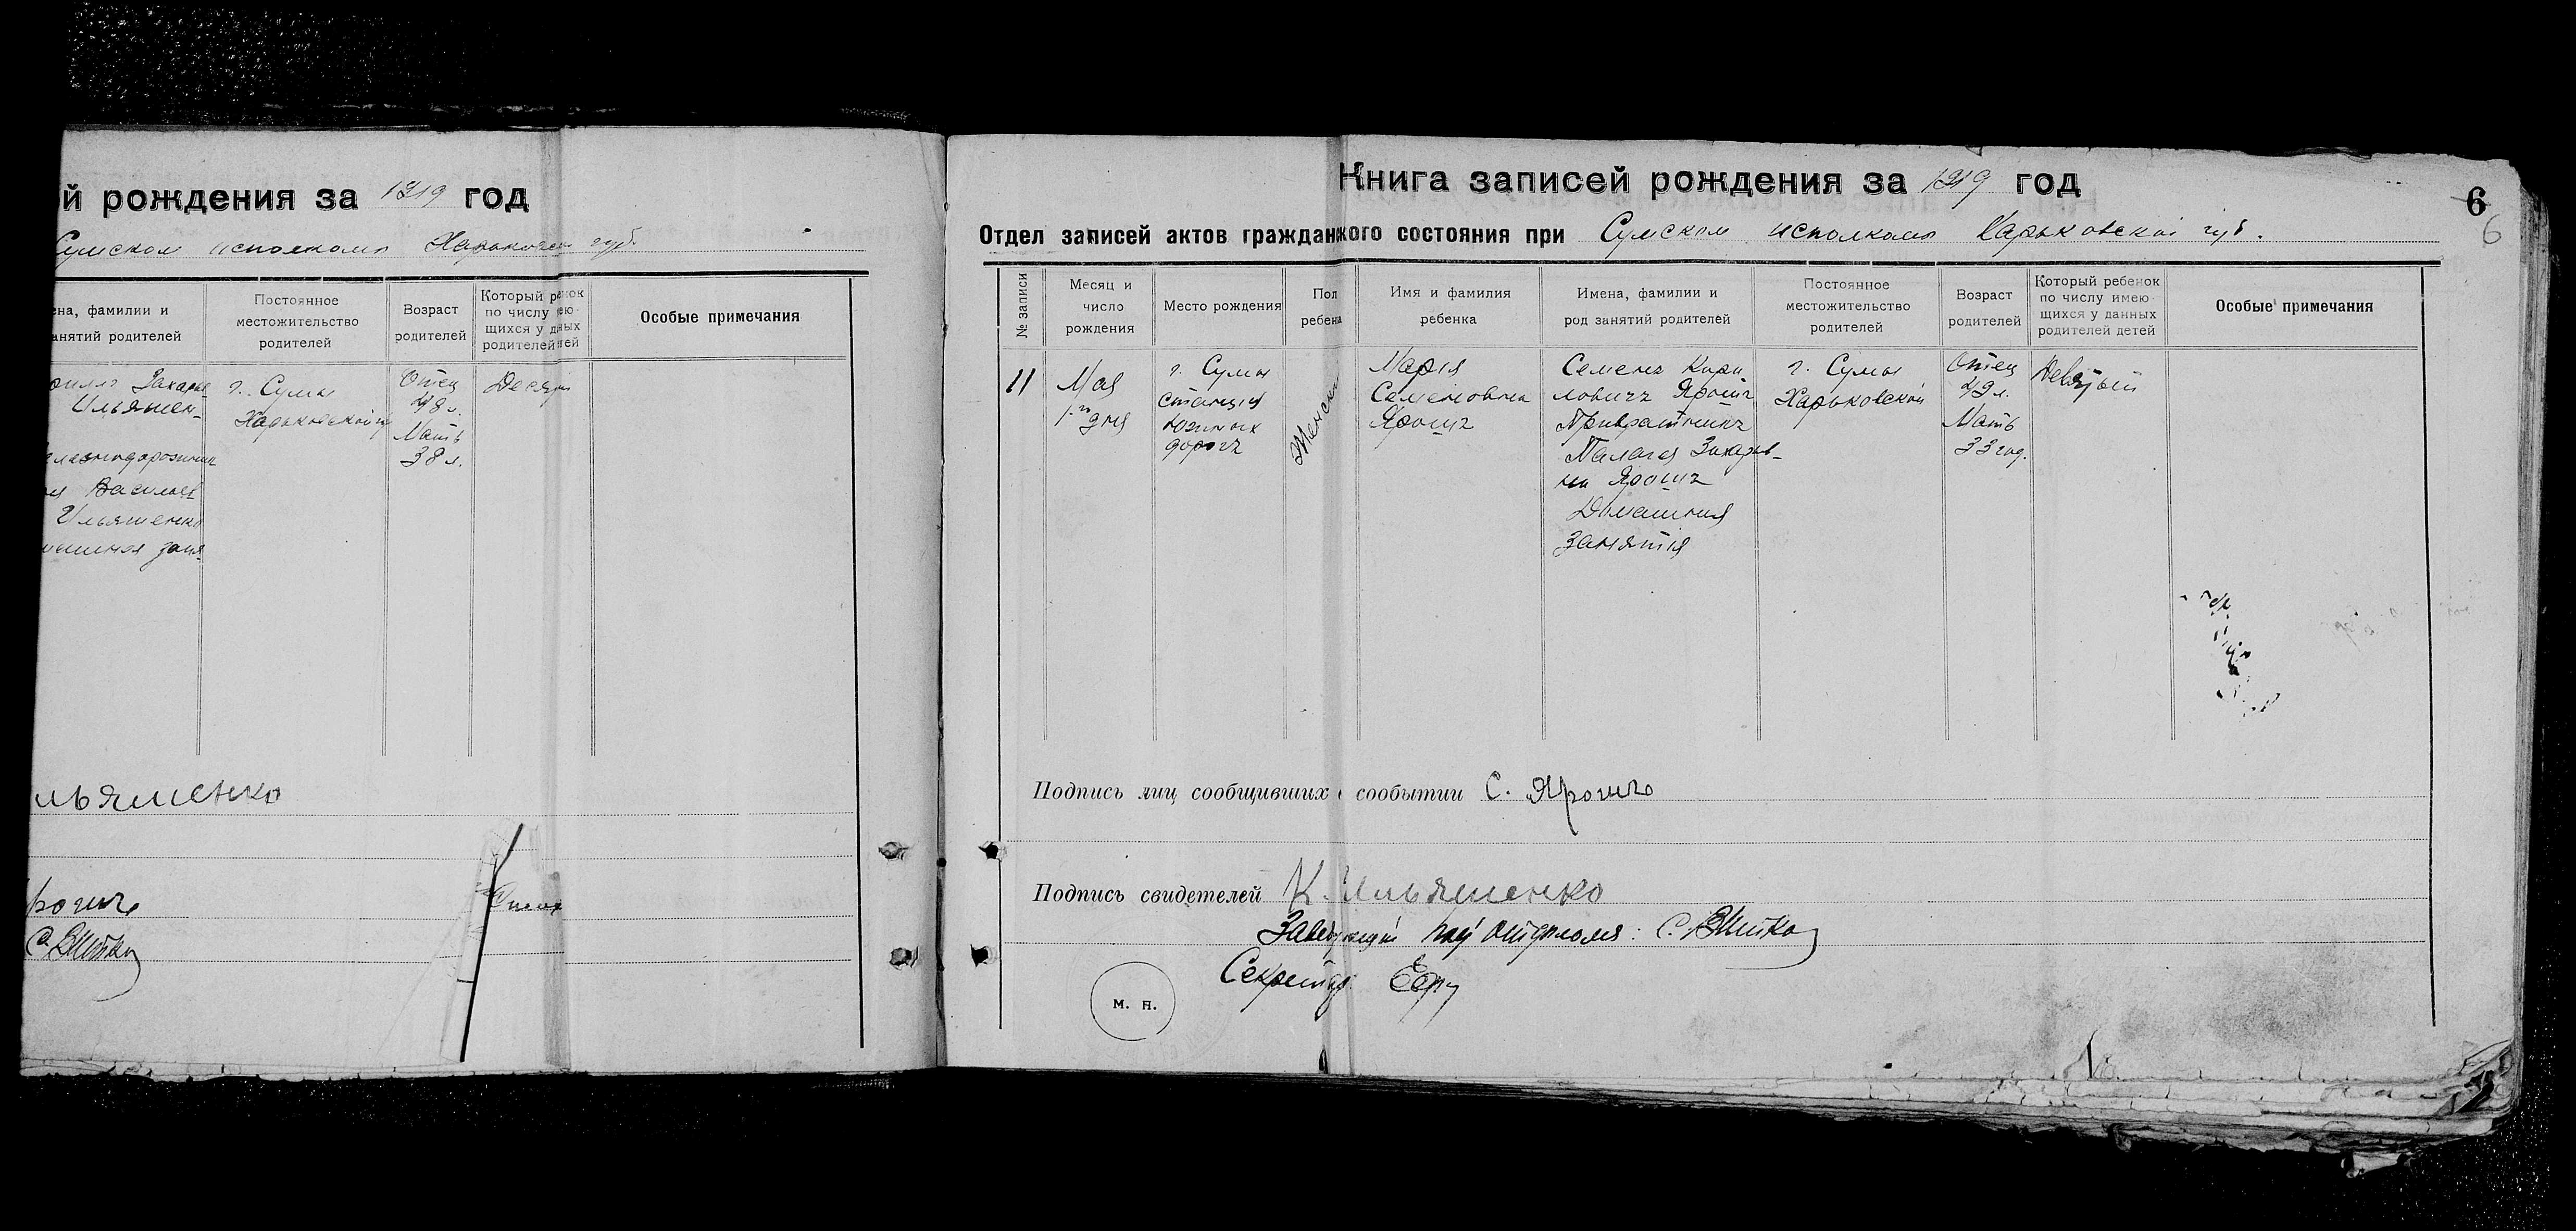 й рождения за 1919 год
Сумском исполкоме Харьковск губ.
ена, фамилии и
анятий родителей
Постоянное
местожительство
родителей
Возраст
родителей
Который
по числу
щихся у
родителей
Особые примечания
Захарье
Ильяшен-
Васильев
Ильяшенко
г. Сумы
Харьковской
Отец
48 л.
Мать
38 л.
Десяты
льяшенко
Книга записей рождения за 1919 год
6
6
Отдел записей актов гражданского состояния при Сумском исполкоме Харьковской губ.
№ записи
Месяц и
число
рождения
Место рождения
Пол
ребенк
Имя и фамилия
ребенка
Имена, фамилии и
род занятий родителей
Постоянное
местожительство
родителей
Возраст
родителей
Который ребенок
по числу имею-
щихся у данных
родителей детей
Особые примечания
11
Мая
1-го
дня
г. Сумы
станция
южных
дорогъ
Женски
Марія
Семеновна
Ярошъ
Семенъ Кири
ловичъ Ярошъ
Привратникъ
Палагея Захарьев-
на Ярошъ
Домашнія
Занятія
г. Сумы
Харьковской
Отец
49 л.
Мать
33 год.
Девятый
Подпись лиц сообщивших о сообытии С. Ярошъ
Подпись свидетелей К. Ильяшенко
Секретар
м. п.